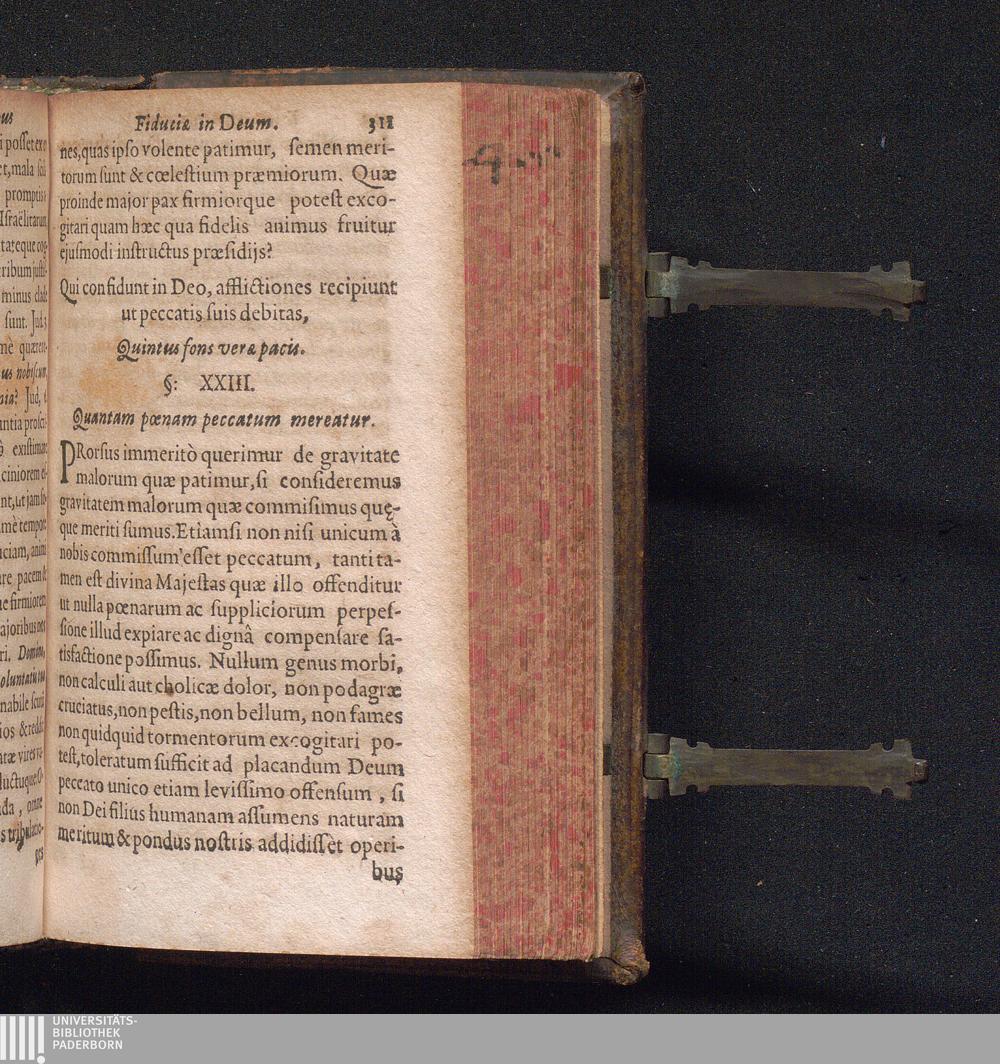 Fiduciæ in Deum. 311
nes,quas ipſo volente patimur, ſemen meri-
torum ſunt & cœleſtium præmiorum. Quæ
proinde major pax firmiorque poteſt exco-
gitari quam hæc qua fidelis animus fruitur
ejuſmodi inſtructus præſidijs?
Qui confidunt in Deo, afflictiones recipiunt
ut peccatis ſuis debitas,
Quintus fons veræ pacis.
§: XXIII.
Quantam pœnam peccatum mereatur.
PRorſus immeritò querimur de gravitate
malorum quæ patimur,ſi conſideremus
gravitatem malorum quæ commiſimus quę-
que meriti ſumus.Etiamſi non niſi unicum à
nobis commiſſum eſſet peccatum, tanti ta-
men eſt divina Majeſtas quæ illo offenditur
ut nulla pœnarum ac ſuppliciorum perpeſ-
ſione illud expiare ac dignâ compenſare ſa-
tisfactione poſſimus. Nullum genus morbi,
non calculi aut cholicæ dolor, non podagræ
cruciatus,non peſtis,non bellum, non fames
non quidquid tormentorum excogitari po-
teſt,toleratum ſufficit ad placandum Deum
peccato unico etiam leviſſimo offenſum , ſi
non Dei filius humanam aſſumens naturam
meritum & pondus noſtris addidiſſèt operi-
bus
UNIVERSITÄTS-
BIBLIOTHEK
PADERBORN